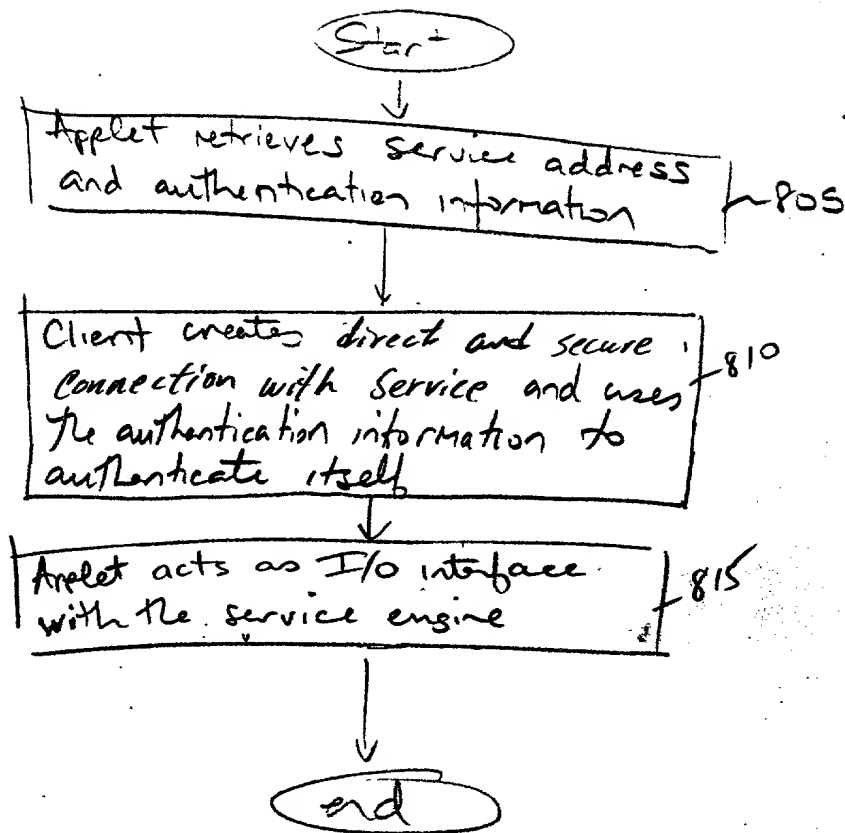 Start
Applet retrieves service address
and authentication information
805
Client creates direct and secure
connection with service and uses
the authentication information to
authenticate itself
810
Applet acts as I/O interface
with the service engine
815
end